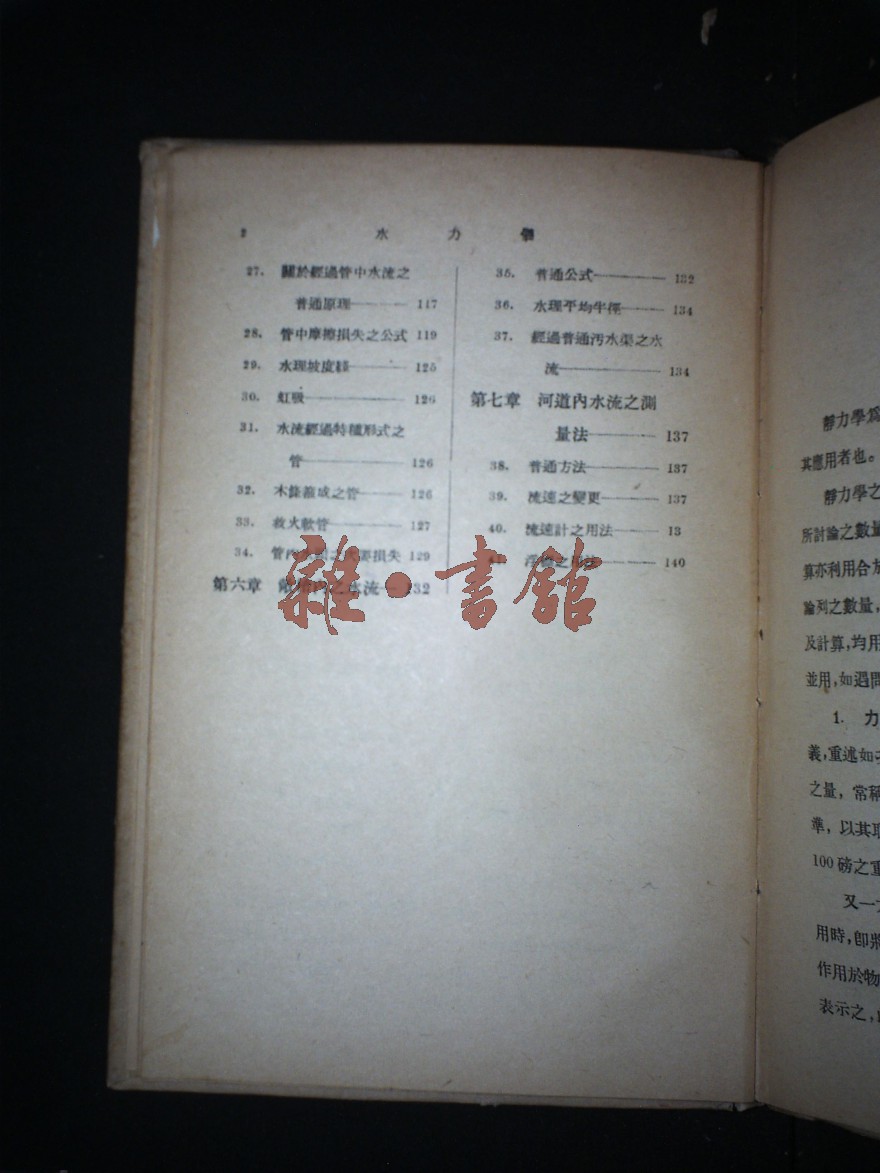 2 水力學
27. 關於經過管中水流之
普通原理 117
28. 管中摩擦損失之公式 119
29. 水理坡度線 125
30. 虹吸 126
31. 水流經過特種形式之
管 126
32. 木條箍成之管 126
33. 救火軟管 127
34. 管內 損失 129
第六章 之水流 132
35. 普通公式 132
36. 水理平均半徑 134
37. 經過普通污水渠之水
流 134
第七章 河道內水流之測
量法 137
38. 普通方法 137
39. 流速之變更 137
40. 流速計之用法 13
140
雜·書館
靜力學爲
其應用者也。
靜力學之
所討論之數量
算亦利用合
論列之數量,
及計算,均用
並用,如遇問
1. 力
義,重述如
之量,常稱
準,以其
100磅之重
又一
用時,卽將
作用於物
表示之,